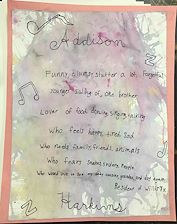 Addison
Funny, clumsy, stutter a lot, forgetful
younger sibling of one brother
Lover of food, dancing, singing, talking
Who feels happy, tired, sad
Who needs family, friends, animals
Who fears snakes, spiders, people
Who would like to see my
Resident of
Harkins